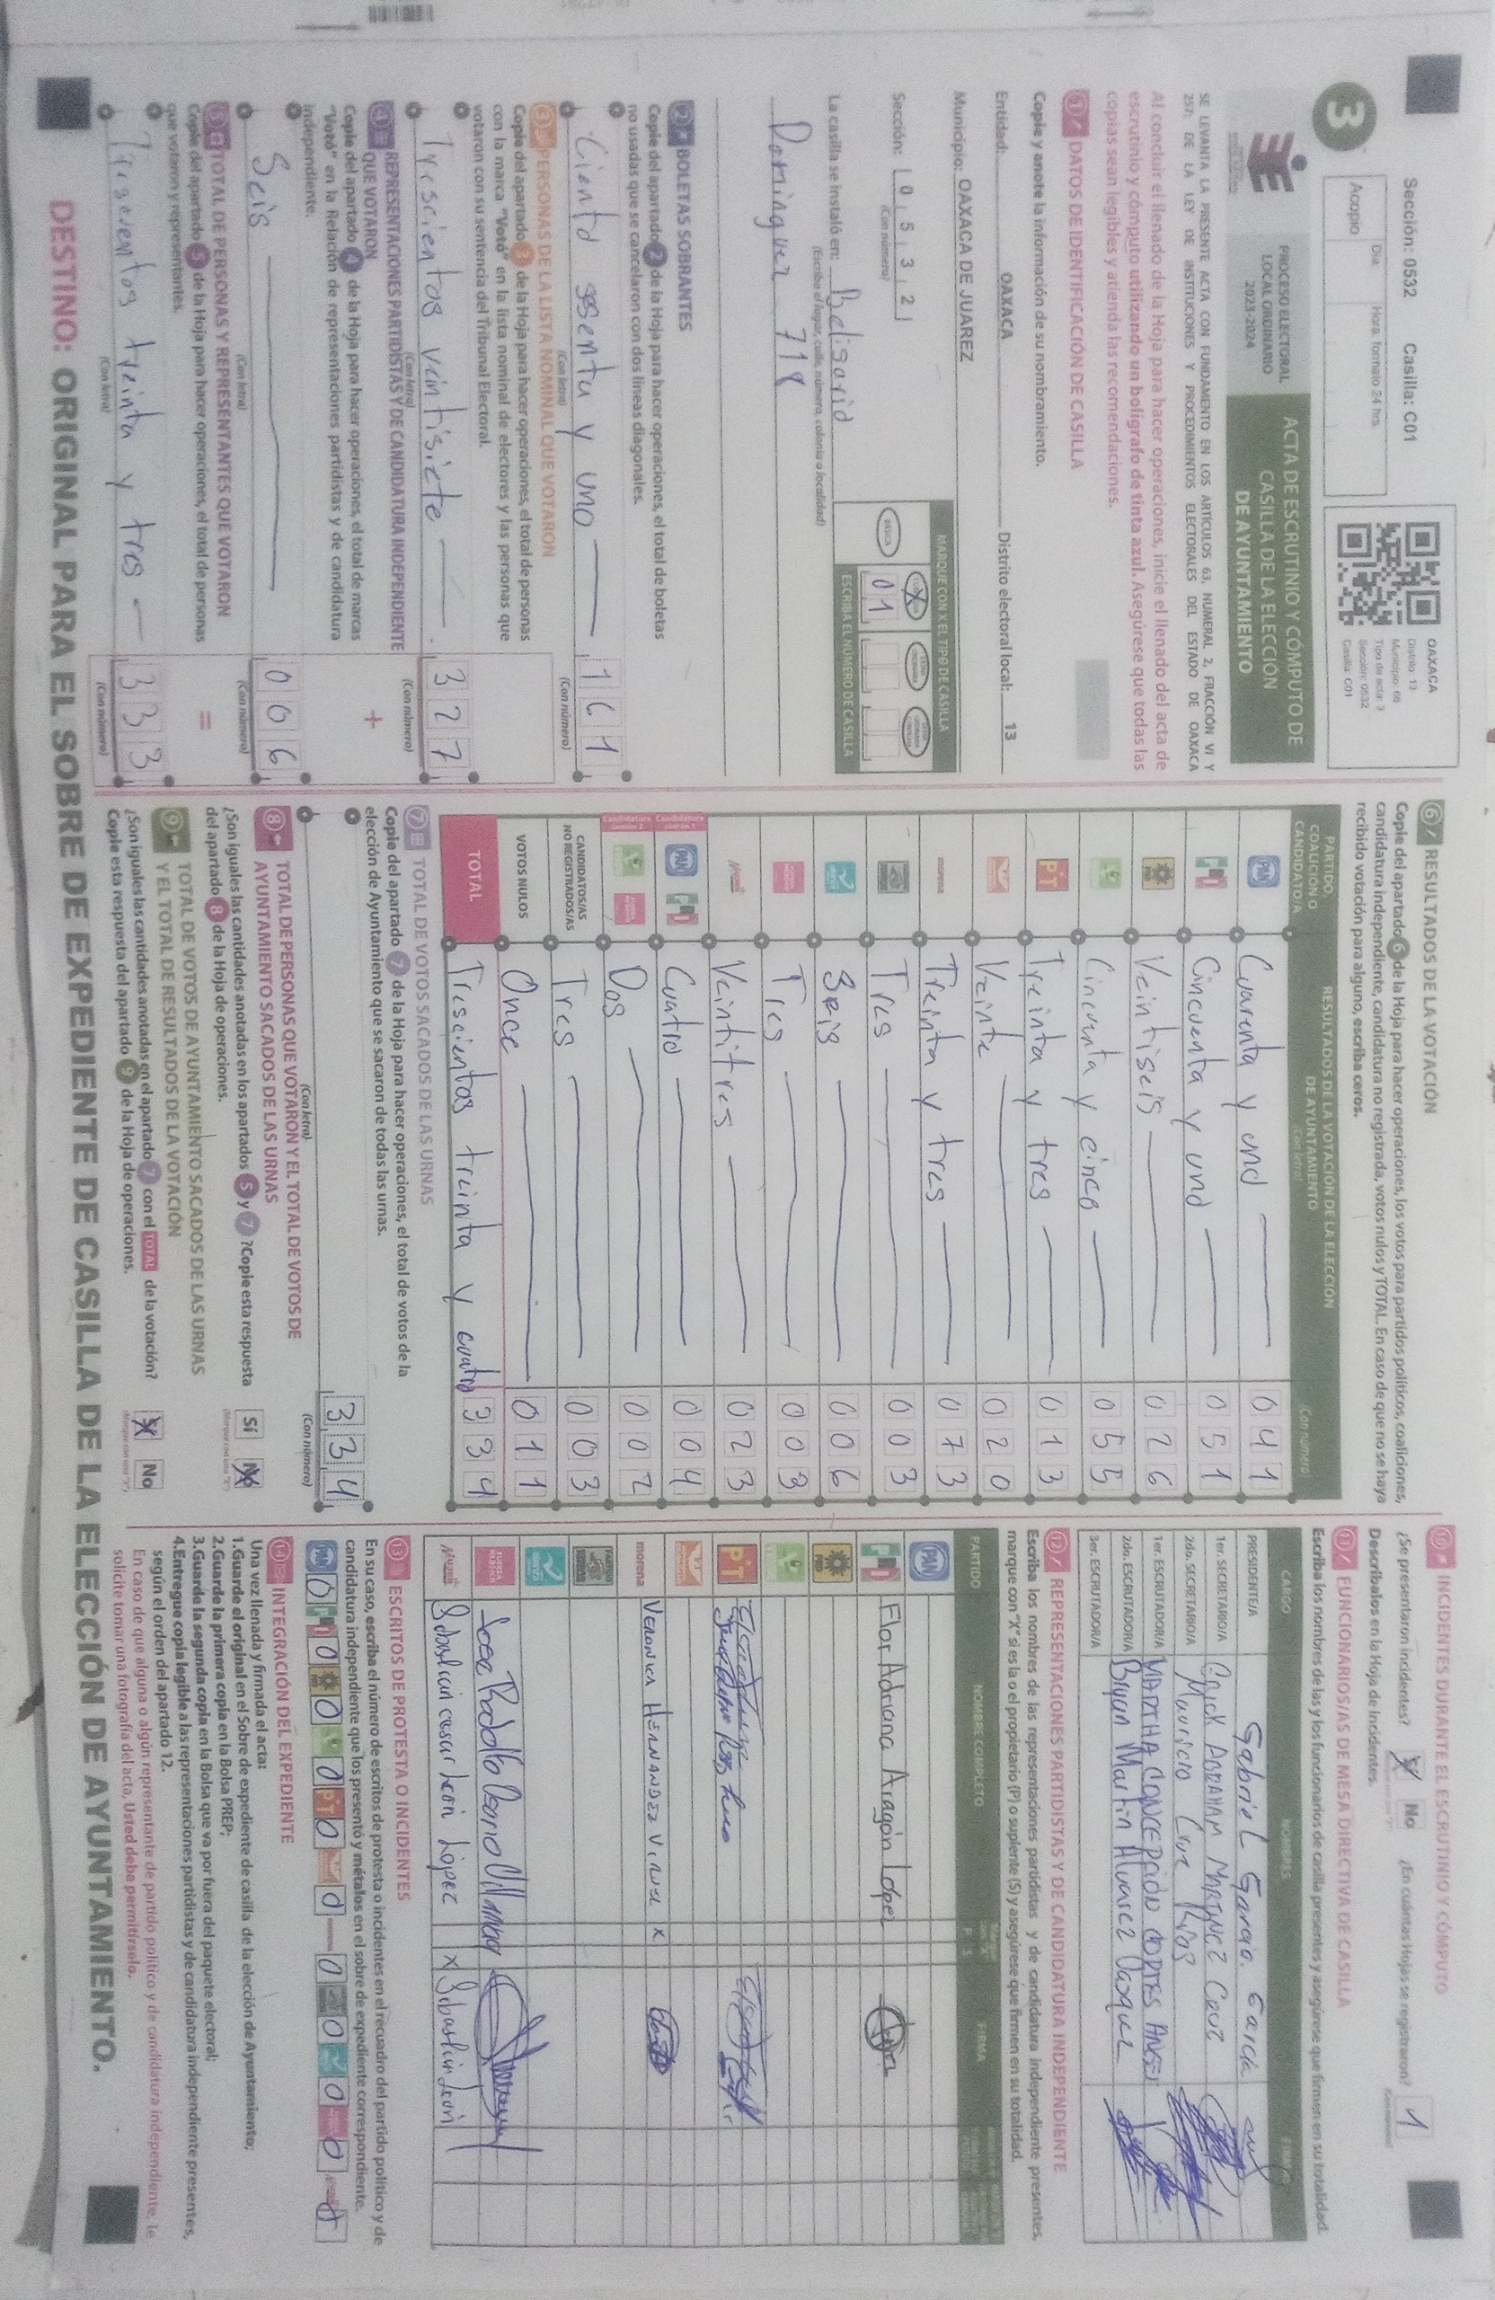 Sección: 0532 Casilla: C01
3
Día Hora: formato 24 hrs.
Acopio
OAXACA
Distrito: 13
Municipio: 66
Tipo de acta: 3
Sección: 0532
Casilla: C01
PROCESO ELECTORAL
LOCAL ORDINARIO
2023-2024
ACTA DE ESCRUTINIO Y CÓMPUTO DE
CASILLA DE LA ELECCIÓN
DE AYUNTAMIENTO
SE LEVANTA LA PRESENTE ACTA CON FUNDAMENTO EN LOS ARTÍCULOS 63, NUMERAL 2, FRACCIÓN VI Y
257; DE LA LEY DE INSTITUCIONES Y PROCEDIMIENTOS ELECTORALES DEL ESTADO DE OAXACA
Al concluir el llenado de la Hoja para hacer operaciones, inicie el llenado del acta de
escrutinio y cómputo utilizando un bolígrafo de tinta azul. Asegúrese que todas las
copias sean legibles y atienda las recomendaciones.
1 DATOS DE IDENTIFICACIÓN DE CASILLA
Copie y anote la información de su nombramiento.
Entidad: OAXACA Distrito electoral local: 13
Municipio: OAXACA DE JUAREZ
Sección: 0 5 3 2
(Con número)
MARQUE CON X EL TIPO DE CASILLA
BÁSICA X
01
ESCRIBA EL NÚMERO DE CASILLA
La casilla se instaló en: Belisario
(Escriba el lugar, calle, número, colonia o localidad)
Dominguez 718
2 BOLETAS SOBRANTES
Copie del apartado 2 de la Hoja para hacer operaciones, el total de boletas
no usadas que se cancelaron con dos líneas diagonales.
Ciento sesenta y uno 161
(Con letra) (Con número)
3 PERSONAS DE LA LISTA NOMINAL QUE VOTARON
Copie del apartado 3 de la Hoja para hacer operaciones, el total de personas
con la marca "Votó" en la lista nominal de electores y las personas que
votaron con su sentencia del Tribunal Electoral.
Trescientos veintisiete 327
(Con letra) (Con número)
4 REPRESENTACIONES PARTIDISTAS Y DE CANDIDATURA INDEPENDIENTE
QUE VOTARON
Copie del apartado 4 de la Hoja para hacer operaciones, el total de marcas
"Votó" en la Relación de representaciones partidistas y de candidatura
independiente.
+
Seis 006
(Con letra) (Con número)
5 TOTAL DE PERSONAS Y REPRESENTANTES QUE VOTARON
Copie del apartado 5 de la Hoja para hacer operaciones, el total de personas
que votaron y representantes.
=
Trescientos treinta y tres 333
(Con letra) (Con número)
6 RESULTADOS DE LA VOTACIÓN
Copie del apartado 6 de la Hoja para hacer operaciones, los votos para partidos políticos, coaliciones,
candidatura independiente, candidatura no registrada, votos nulos y TOTAL. En caso de que no se haya
recibido votación para alguno, escriba ceros.
PARTIDO, COALICIÓN O CANDIDATO/A
RESULTADOS DE LA VOTACIÓN DE LA ELECCIÓN
DE AYUNTAMIENTO
(Con letra) (Con número)
PAN Cuarenta y uno 041
PRI Cincuenta y uno 051
PRD Veintiseis 026
Cincuenta y cinco 055
PT Treinta y tres 013
Veinte 020
morena Treinta y tres 073
Tres 003
Seis 006
Tres 003
Veintitres 023
PAN PRI Cuatro 004
Dos 002
CANDIDATOS/AS
NO REGISTRADOS/AS Tres 003
VOTOS NULOS Once 011
TOTAL Trescientos treinta y cuatro 334
7 TOTAL DE VOTOS SACADOS DE LAS URNAS
Copie del apartado 7 de la Hoja para hacer operaciones, el total de votos de la
elección de Ayuntamiento que se sacaron de todas las urnas.
334
(Con letra) (Con número)
8 TOTAL DE PERSONAS QUE VOTARON Y EL TOTAL DE VOTOS DE
AYUNTAMIENTO SACADOS DE LAS URNAS
¿Son iguales las cantidades anotadas en los apartados 5 y 7? Copie esta respuesta
del apartado 8 de la Hoja de operaciones.
Sí No
9 TOTAL DE VOTOS DE AYUNTAMIENTO SACADOS DE LAS URNAS
Y EL TOTAL DE RESULTADOS DE LA VOTACIÓN
¿Son iguales las cantidades anotadas en el apartado 7 con el TOTAL de la votación?
Copie esta respuesta del apartado 9 de la Hoja de operaciones.
Sí No
10 INCIDENTES DURANTE EL ESCRUTINIO Y CÓMPUTO
¿Se presentaron incidentes? Sí No ¿En cuántas Hojas se registraron? 1
Descríbalos en la Hoja de Incidentes.
11 FUNCIONARIOS/AS DE MESA DIRECTIVA DE CASILLA
Escriba los nombres de las y los funcionarios de casilla presentes y asegúrese que firmen en su totalidad.
CARGO NOMBRES FIRMA
PRESIDENTE/A Gabriel Garcia Garcia
1er. SECRETARIO/A Erick ABRAHAM MARTINEZ Cruz
2do. SECRETARIO/A Mauricio Cruz Rios
1er. ESCRUTADOR/A MARTHA CONCEPCIÓN CORTES ANGEL
2do. ESCRUTADOR/A Bryan Martin Alvarez Vasquez
3er. ESCRUTADOR/A
12 REPRESENTACIONES PARTIDISTAS Y DE CANDIDATURA INDEPENDIENTE
Escriba los nombres de las representaciones partidistas y de candidatura independiente presentes,
marque con "X" si es la o el propietario (P) o suplente (S) y asegúrese que firmen en su totalidad.
PARTIDO NOMBRE COMPLETO P S FIRMA
PAN
PRI Flor Adriana Aragón López
PRD
PT
morena VERONICA HERNANDEZ x
Sebastian cesar León López x Sebastián León
13 ESCRITOS DE PROTESTA O INCIDENTES
En su caso, escriba el número de escritos de protesta o incidentes en el recuadro del partido político y de
candidatura independiente que los presentó y métalos en el sobre de expediente correspondiente.
PAN 0 PRI 0 PRD 0 0 PT 0 0 0 0 0 0
14 INTEGRACIÓN DEL EXPEDIENTE
Una vez llenada y firmada el acta:
1.Guarde el original en el Sobre de expediente de casilla de la elección de Ayuntamiento;
2.Guarde la primera copia en la Bolsa PREP;
3.Guarde la segunda copia en la Bolsa que va por fuera del paquete electoral;
4.Entregue copia legible a las representaciones partidistas y de candidatura independiente presentes,
según el orden del apartado 12.
En caso de que alguna o algún representante de partido político y de candidatura independiente, le
solicite tomar una fotografía del acta, Usted debe permitírselo.
DESTINO: ORIGINAL PARA EL SOBRE DE EXPEDIENTE DE CASILLA DE LA ELECCIÓN DE AYUNTAMIENTO.